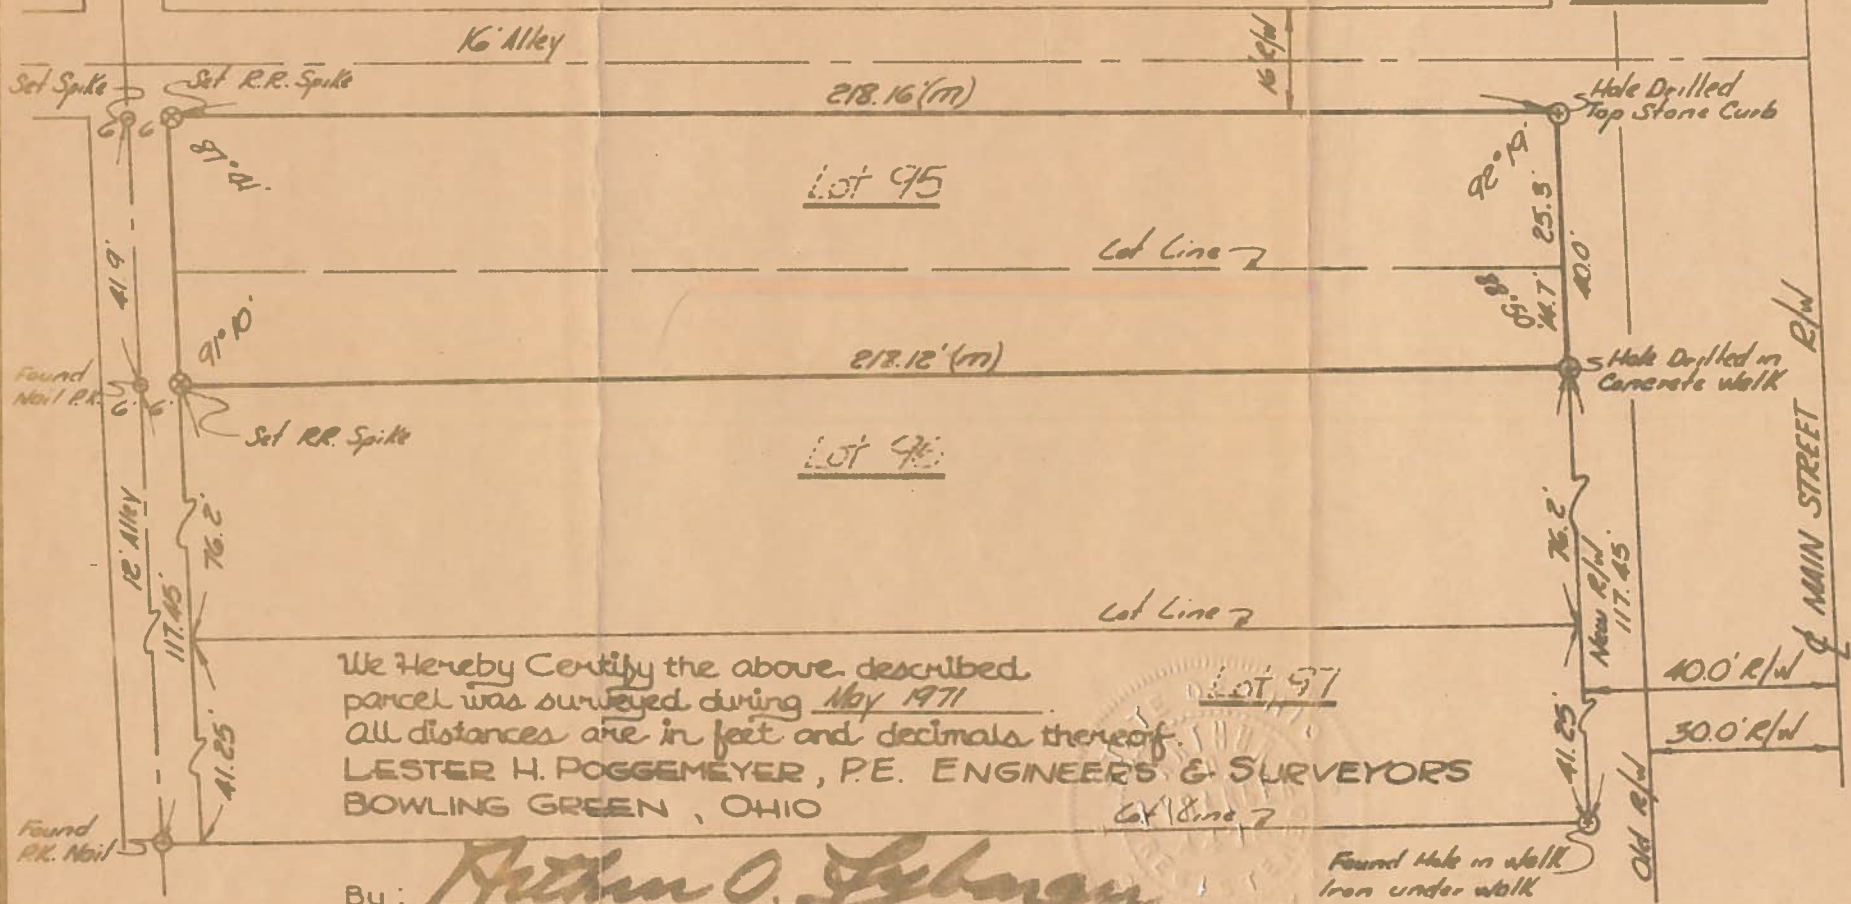 16' Alley
16' R/W
Set Spike
Set R.R. Spike
218.16'(m)
Hole Drilled
Top Stone Curb
6' 6'
92° 19'
Lot 95
25.3'
Lot Line
40.0'
41.9'
14.7'
91° 10'
88° 50'
218.12'(m)
Found
Nail P.K.
6' 6'
Hole Drilled in
Concrete Walk
Set RR. Spike
Lot 96
12' Alley
76.2'
117.45'
76.2'
New R/W
117.45'
℄ MAIN STREET R/W
Lot Line
We Hereby Certify the above described
parcel was surveyed during May 1971.
All distances are in feet and decimals thereof.
LESTER H. POGGEMEYER, P.E. ENGINEERS & SURVEYORS
BOWLING GREEN, OHIO
Lot 97
40.0' R/W
30.0' R/W
41.25'
41.25'
Lot Line
Old R/W
Found
P.K. Nail
Found Hole in walk
Iron under walk
By: Arthur O.